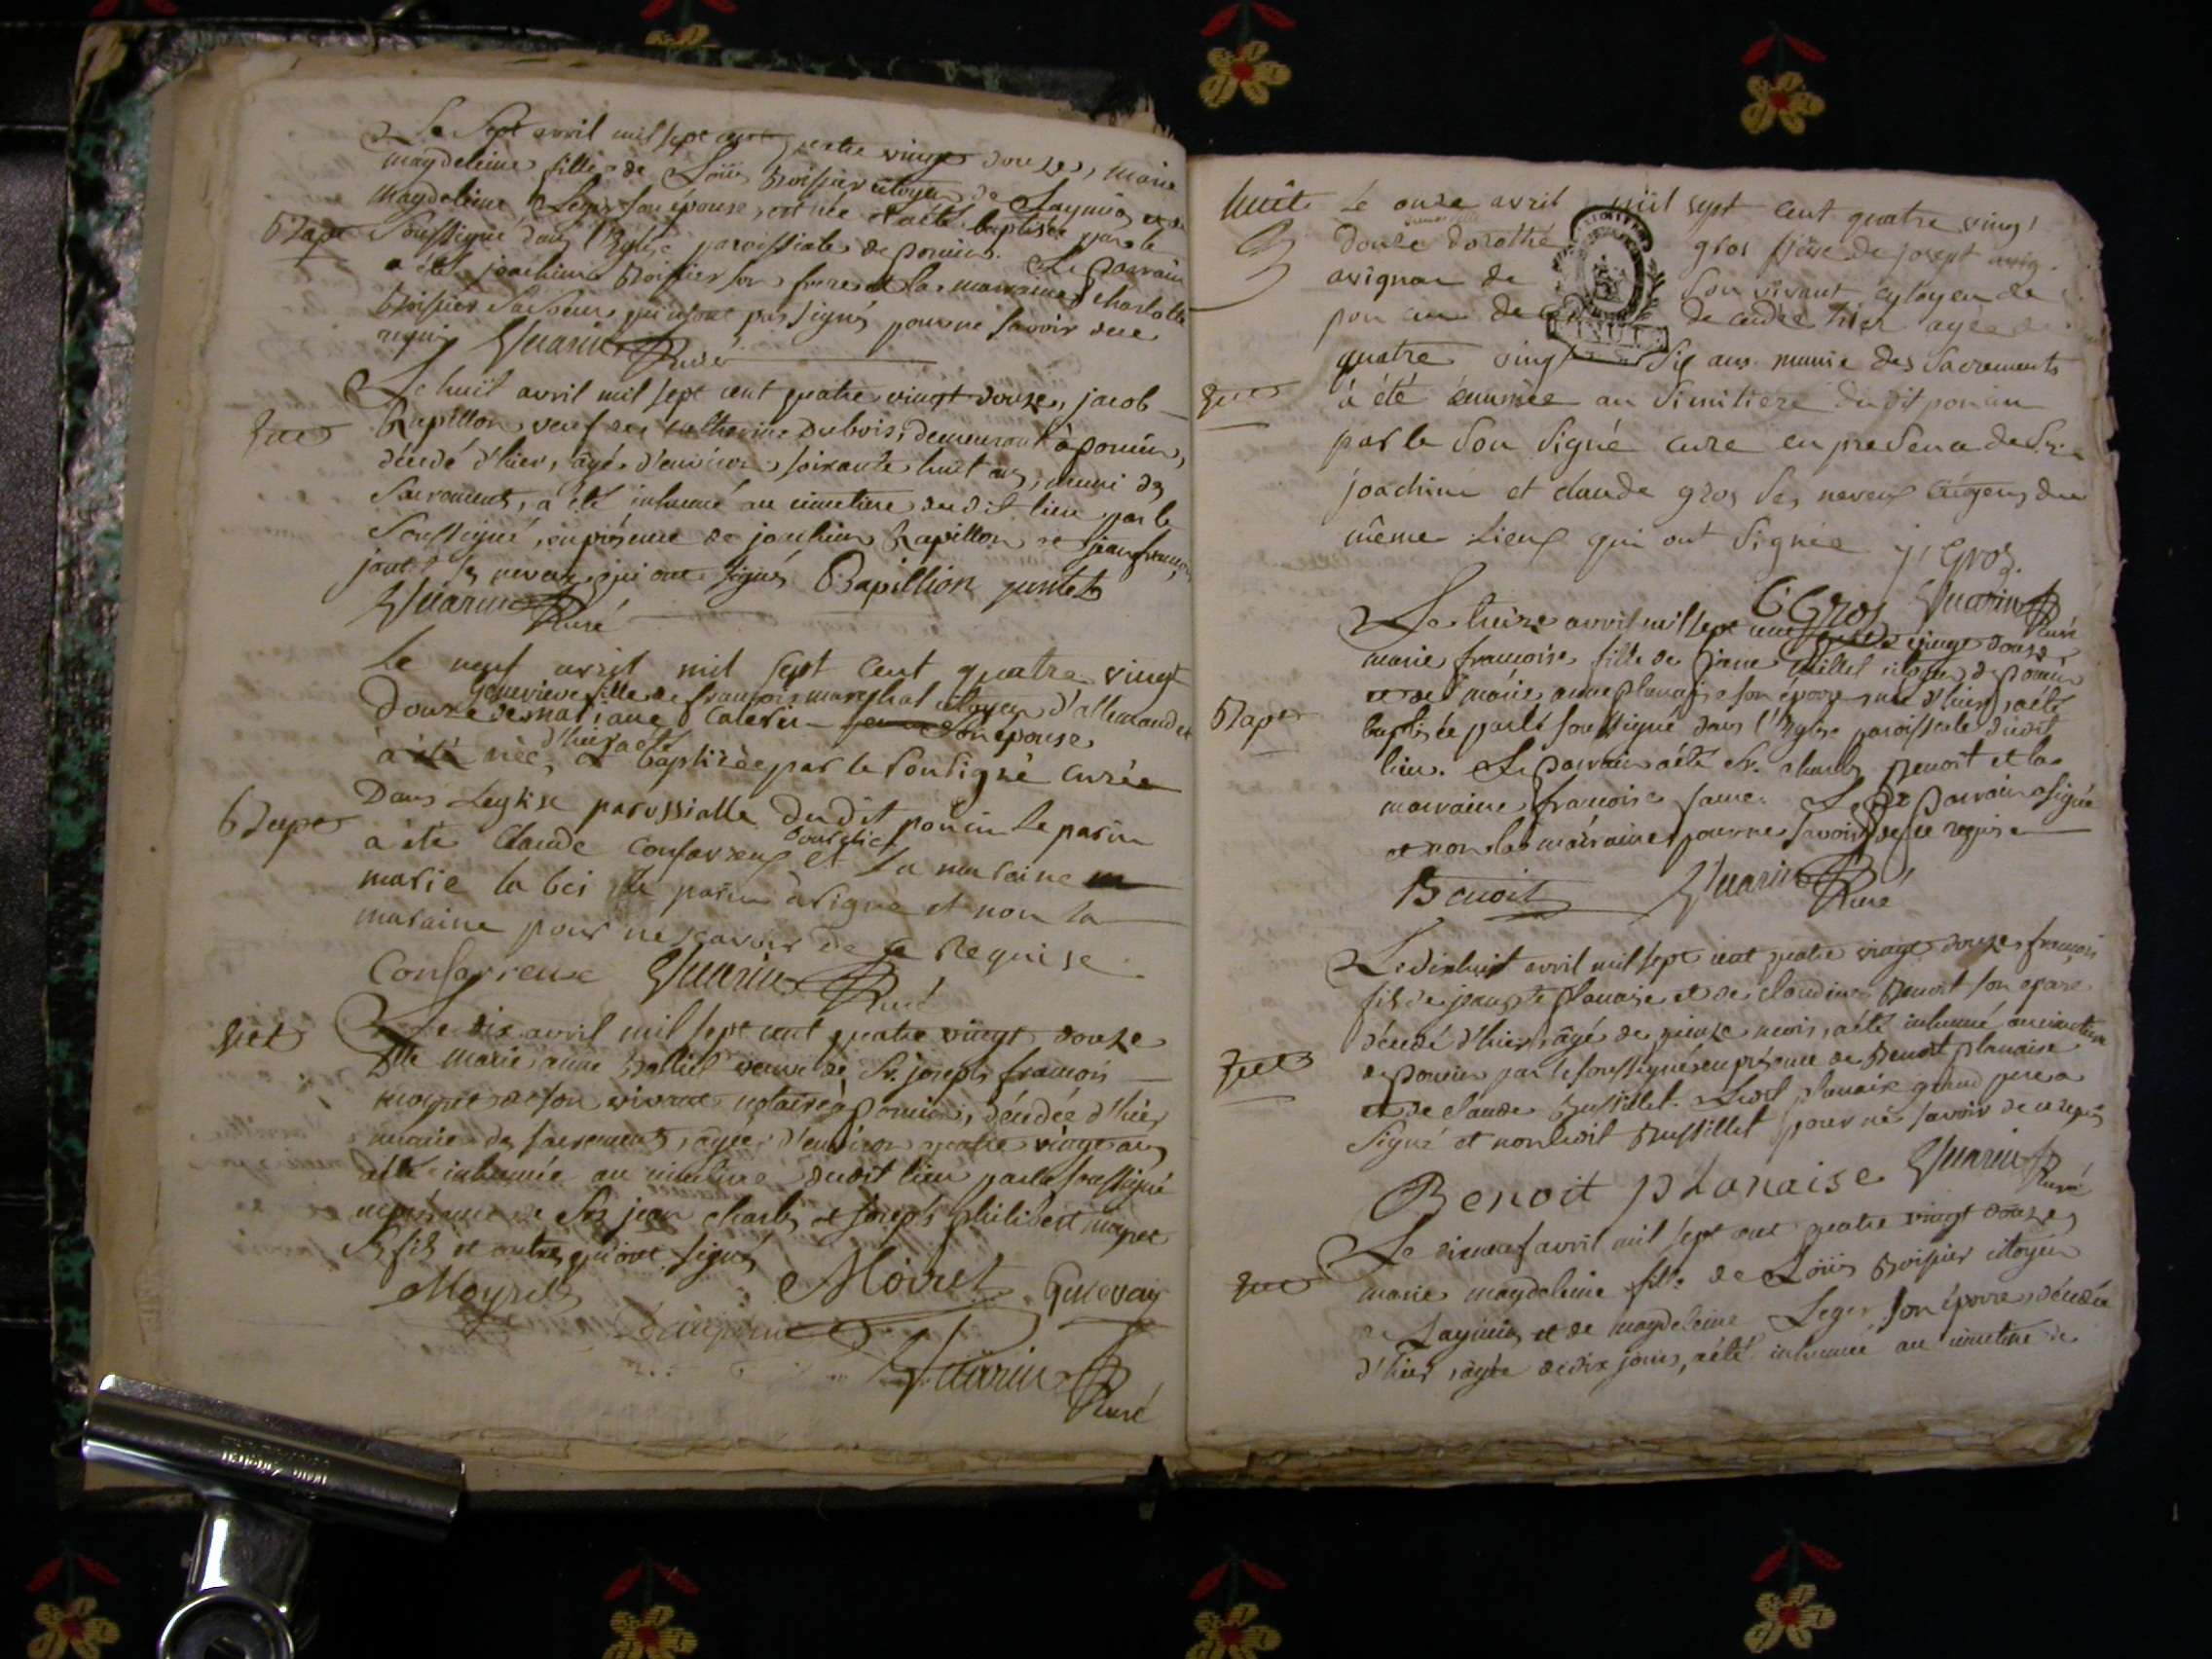 Le Sept avril mil sept cent quatre vingt douze, marie
magdeleine fille de Loüis Boissier citoyen de Laymia et de
magdeleine Leger son épouse, est née et a été baptisée par le
Bapt Soussigné dans l'Eglise paroissiale de poncin. Le parrain
a été joachim Boissier son frere et la marraine charlotte
Boissier Sa Soeur qui n'ont pas signés pour ne savoir de ce
requis Guarin Curé
Le huit avril mil sept cent quatre vingt douze, jacob
Papillon veuf de catherine Dubois, demeurant à poncin,
décédé d'hier, âgé d'environ soixante huit ans, muni des
Sacrements, a été inhumé au cimetiere dudit lieu par le
Soussigné, en présence de joachim Papillon et jean francois
jantet ses neveux qui ont signés Papillion jantet
Guarin Curé
Le neuf avril mil sept cent quatre vingt
Genevieve fille de francois mareschal citoyen d'allemand et
Douze de mariane son épouse
d'hier a été
à été née, et baptizée par le Sousigné Curée
Dans Leglise parossialle Dudit poncin Le parin
Bapt a été Claude Confavreux et La maraine
marie la bei le parin a signé et non la
maraine pour ne scavoir de ce Requise
Confavreux Guarin Curé
Le dix avril mil sept cent quatre vingt douze
Dlle marie anne veuve de Sr. joseph francois
moyret de son vivant notaire à poncin, décédée d'hier
munie des sacrements, agée d'environ quatre vingt ans
a été inhumée au cimetiere dudit lieu par le soussigné
en présence de Srs jean charles et joseph philibert moyret
Ses fils et autres qui ont signés
Moyret Moiret
Guarin
Curé
huit Le onze avril mil sept cent quatre vingt
Douze dorothé gros de joseph
avignan de Son vivant cytoyen de
decedee hier agée de
quatre vingt Six ans munie Des Sacrements
à été énumée au Simitiere dudit poncin
par le Sou Signé cure en presence de Sr
joachim et claude gros Ses neveux du
même Lieux qui ont Signée j, Gros
C Gros Guarin Curé
Le treize avril mil sept cent quatre vingt douze
marie francoise fille de citoyen de poncin
et de marie anne planaise son épouse, née d'hier, a été
Bapt baptisée par le soussigné dans l'Eglise paroissiale dudit
lieu. Le parrain a été Sr. charles Benoit et la
marraine francoise Le dt parrain a signé
et non la marraine pour ne savoir de ce requise
Benoit Guarin Curé
Le dixhuit avril mil sept cent quatre vingt douze, francois
fils de jean Bte planaise et de claudine Benoit son épouse
décédé d'hier, âgé de quinze mois, a été inhumé au cimetiere
de poncin par le soussigné en présence de Benoit planaise
et de claude Bussillet. Ledit planaise grand pere a
Signé et non ledit Bussillet pour ne savoir de ce requis
Benoit planaise Guarin Curé
Le dixneuf avril mil sept cent quatre vingt douze,
marie magdeleine fille de Loüis Boissier citoyen
de Laymia et de magdeleine Leger son épouse, décédée
d'hier, âgée de dix jours, a été inhumée au cimetiere de